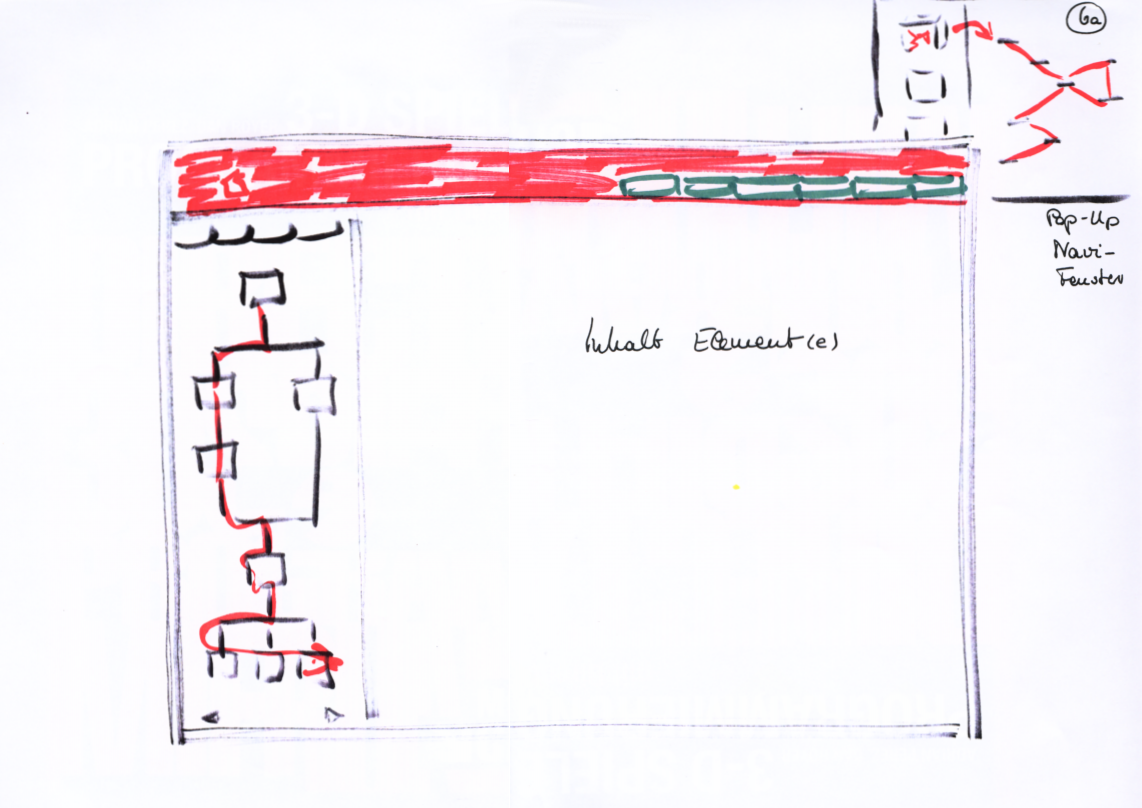 6a
Pop-Up
Navi-
Fenster
Inhalt Element(e)